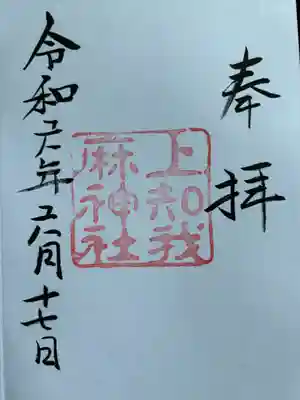 奉拝
上知我
麻神社
令和六年六月十七日